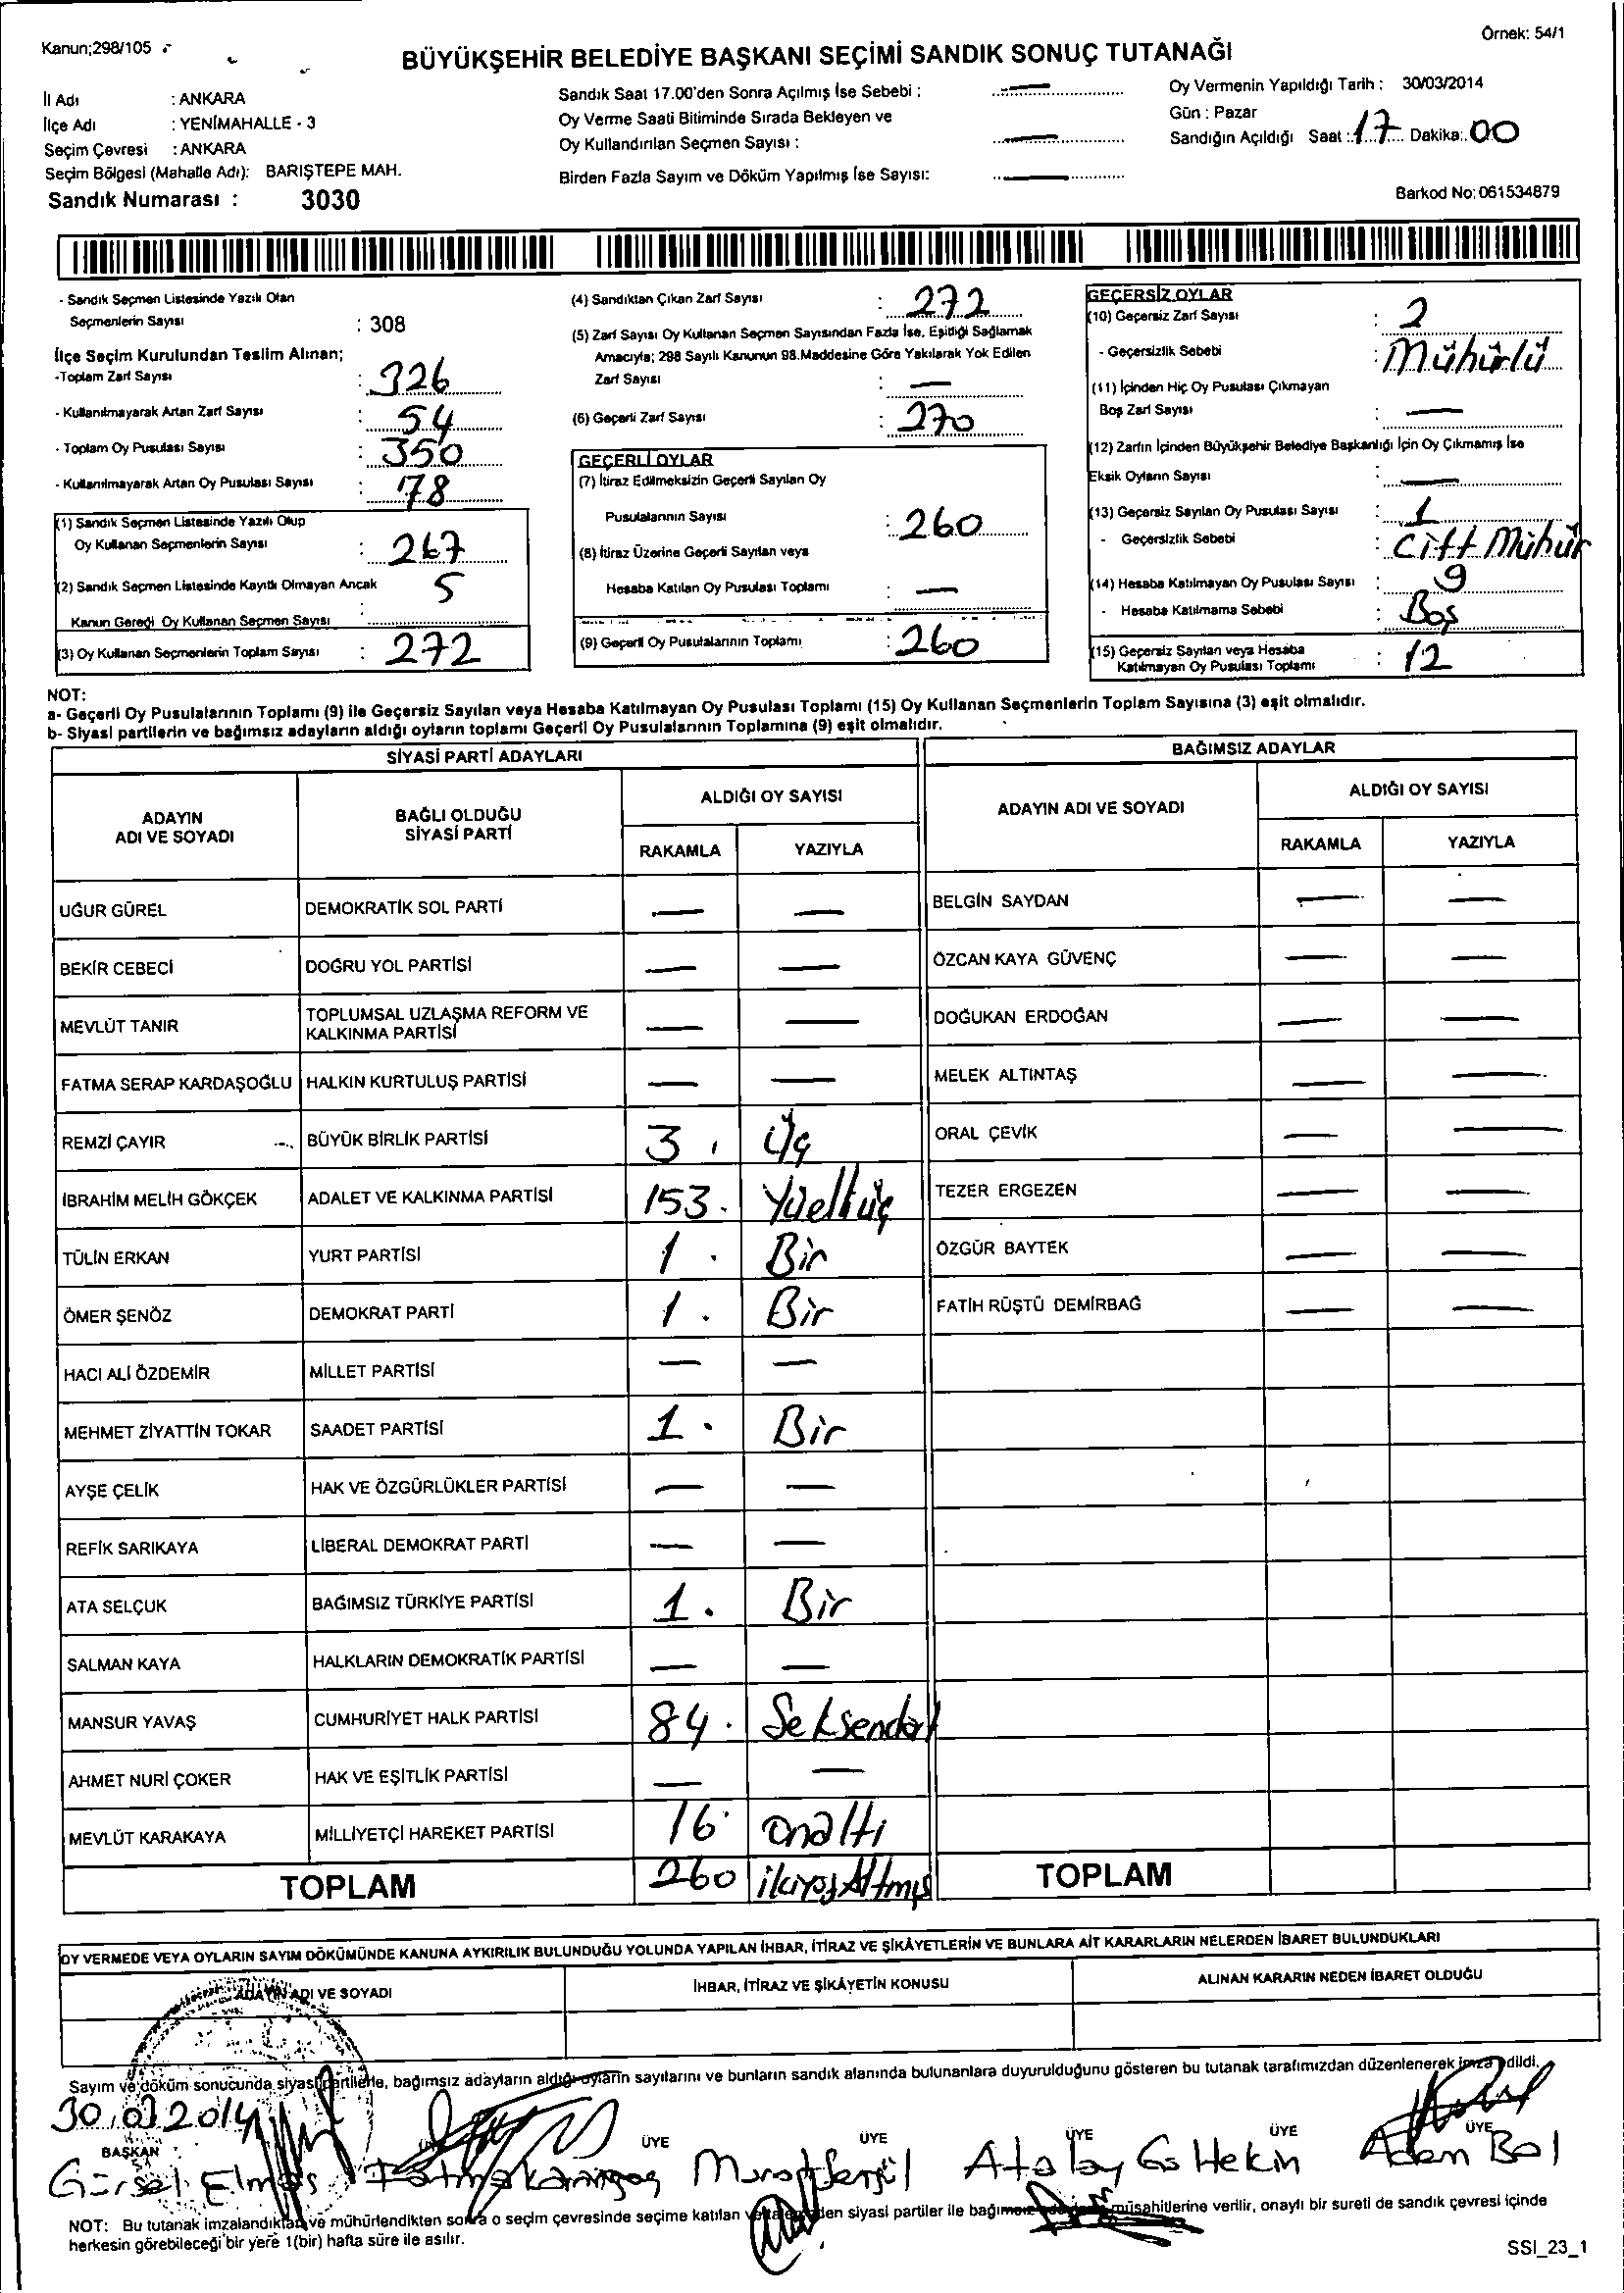 Kanun;298/105
Örnek: 54/1
BÜYÜKŞEHİR BELEDİYE BAŞKANI SEÇİMİ SANDIK SONUÇ TUTANAĞI
İl Adı : ANKARA
İlçe Adı : YENİMAHALLE - 3
Seçim Çevresi : ANKARA
Seçim Bölgesi (Mahalle Adı): BARIŞTEPE MAH.
Sandık Numarası : 3030
Sandık Saat 17.00'den Sonra Açılmış İse Sebebi : —
Oy Verme Saati Bitiminde Sırada Bekleyen ve
Oy Kullandırılan Seçmen Sayısı : —
Birden Fazla Sayım ve Döküm Yapılmış İse Sayısı: —
Oy Vermenin Yapıldığı Tarih : 30/03/2014
Gün : Pazar
Sandığın Açıldığı Saat : 17 Dakika: 00
Barkod No: 061534879
- Sandık Seçmen Listesinde Yazılı Olan
Seçmenlerin Sayısı : 308
İlçe Seçim Kurulundan Teslim Alınan;
-Toplam Zarf Sayısı : 326
- Kullanılmayarak Artan Zarf Sayısı : 54
- Toplam Oy Pusulası Sayısı : 350
- Kullanılmayarak Artan Oy Pusulası Sayısı : 78
(1) Sandık Seçmen Listesinde Yazılı Olup
Oy Kullanan Seçmenlerin Sayısı : 267
(2) Sandık Seçmen Listesinde Kayıtlı Olmayan Ancak 5
Kanun Gereği Oy Kullanan Seçmen Sayısı :
(3) Oy Kullanan Seçmenlerin Toplam Sayısı : 272
(4) Sandıktan Çıkan Zarf Sayısı : 272
(5) Zarf Sayısı Oy Kullanan Seçmen Sayısından Fazla İse, Eşitliği Sağlamak
Amacıyla; 298 Sayılı Kanunun 98.Maddesine Göre Yakılarak Yok Edilen
Zarf Sayısı : —
(6) Geçerli Zarf Sayısı : 270
GEÇERLİ OYLAR
(7) İtiraz Edilmeksizin Geçerli Sayılan Oy
Pusulalarının Sayısı : 260
(8) İtiraz Üzerine Geçerli Sayılan veya
Hesaba Katılan Oy Pusulası Toplamı : —
(9) Geçerli Oy Pusulalarının Toplamı : 260
GEÇERSİZ OYLAR
(10) Geçersiz Zarf Sayısı : 2
- Geçersizlik Sebebi : Mühürlü
(11) İçinden Hiç Oy Pusulası Çıkmayan
Boş Zarf Sayısı : —
(12) Zarfın İçinden Büyükşehir Belediye Başkanlığı İçin Oy Çıkmamış İse
Eksik Oyların Sayısı : —
(13) Geçersiz Sayılan Oy Pusulası Sayısı : 1
- Geçersizlik Sebebi : Cift Mühür
(14) Hesaba Katılmayan Oy Pusulası Sayısı : 9
- Hesaba Katılmama Sebebi : Boş
(15) Geçersiz Sayılan veya Hesaba
Katılmayan Oy Pusulası Toplamı : 12
NOT:
a- Geçerli Oy Pusulalarının Toplamı (9) ile Geçersiz Sayılan veya Hesaba Katılmayan Oy Pusulası Toplamı (15) Oy Kullanan Seçmenlerin Toplam Sayısına (3) eşit olmalıdır.
b- Siyasi partilerin ve bağımsız adayların aldığı oyların toplamı Geçerli Oy Pusulalarının Toplamına (9) eşit olmalıdır.
SİYASİ PARTİ ADAYLARI
ADAYIN ADI VE SOYADI BAĞLI OLDUĞU SİYASİ PARTİ ALDIĞI OY SAYISI
RAKAMLA YAZIYLA
UĞUR GÜREL DEMOKRATİK SOL PARTİ — —
BEKİR CEBECİ DOĞRU YOL PARTİSİ — —
MEVLÜT TANIR TOPLUMSAL UZLAŞMA REFORM VE KALKINMA PARTİSİ — —
FATMA SERAP KARDAŞOĞLU HALKIN KURTULUŞ PARTİSİ — —
REMZİ ÇAYIR BÜYÜK BİRLİK PARTİSİ 3 Üç
İBRAHİM MELİH GÖKÇEK ADALET VE KALKINMA PARTİSİ 153 Yüelliüç
TÜLİN ERKAN YURT PARTİSİ 1 Bir
ÖMER ŞENÖZ DEMOKRAT PARTİ 1 Bir
HACI ALİ ÖZDEMİR MİLLET PARTİSİ — —
MEHMET ZİYATTİN TOKAR SAADET PARTİSİ 1 Bir
AYŞE ÇELİK HAK VE ÖZGÜRLÜKLER PARTİSİ — —
REFİK SARIKAYA LİBERAL DEMOKRAT PARTİ — —
ATA SELÇUK BAĞIMSIZ TÜRKİYE PARTİSİ 1 Bir
SALMAN KAYA HALKLARIN DEMOKRATİK PARTİSİ — —
MANSUR YAVAŞ CUMHURİYET HALK PARTİSİ 84 Seksendört
AHMET NURİ ÇOKER HAK VE EŞİTLİK PARTİSİ — —
MEVLÜT KARAKAYA MİLLİYETÇİ HAREKET PARTİSİ 16 onaltı
TOPLAM 260 ikiyüzAltmış
BAĞIMSIZ ADAYLAR
ADAYIN ADI VE SOYADI ALDIĞI OY SAYISI
RAKAMLA YAZIYLA
BELGİN SAYDAN — —
ÖZCAN KAYA GÜVENÇ — —
DOĞUKAN ERDOĞAN — —
MELEK ALTINTAŞ — —
ORAL ÇEVİK — —
TEZER ERGEZEN — —
ÖZGÜR BAYTEK — —
FATİH RÜŞTÜ DEMİRBAĞ — —
TOPLAM
OY VERMEDE VEYA OYLARIN SAYIM DÖKÜMÜNDE KANUNA AYKIRILIK BULUNDUĞU YOLUNDA YAPILAN İHBAR, İTİRAZ VE ŞİKÂYETLERİN VE BUNLARA AİT KARARLARIN NELERDEN İBARET BULUNDUKLARI
ADAYIN ADI VE SOYADI İHBAR, İTİRAZ VE ŞİKÂYETİN KONUSU ALINAN KARARIN NEDEN İBARET OLDUĞU
Sayım ve döküm sonucunda siyasi partilerle, bağımsız adayların aldığı oyların sayılarını ve bunların sandık alanında bulunanlara duyurulduğunu gösteren bu tutanak tarafımızdan düzenlenerek imza edildi.
30.03 2014
BAŞKAN ÜYE ÜYE ÜYE ÜYE ÜYE
Gürsel Elmas Fatma Murat Şengül Atalay Göktekin Adem Bal
NOT: Bu tutanak imzalandıktan ve mühürlendikten sonra o seçim çevresinde seçime katılan ve siyasi partiler ile bağımsız müşahitlerine verilir, onaylı bir sureti de sandık çevresi içinde
herkesin görebileceği bir yere 1(bir) hafta süre ile asılır.
SSI_23_1